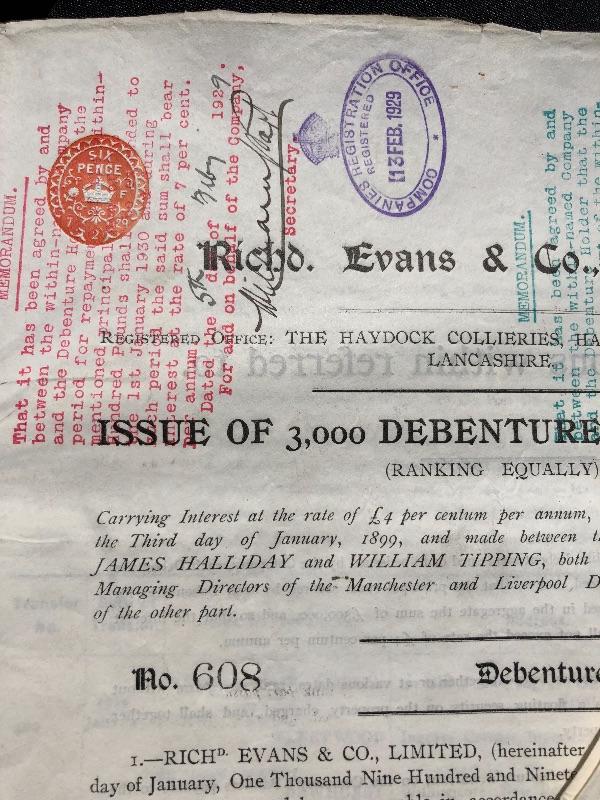 MEMORANDUM.
That it has been agreed by and
between the within-n mpany
and the Debenture H the
period for repayme ithin-
mentioned principal
Hundred Pounds shal ded to
the 1st January 1930 a uring
which period the said sum shall bear
interest at the rate of 7 per cent.
per annum.
Dated the 5th day of Feby 1929.
For and on behalf of the Company,
Secretary.
SIX
PENCE
COMPANIES REGISTRATION OFFICE
REGISTERED
13 FEB. 1929
MEMORANDUM.
That it has been agreed by and
between the within-named Company
and the Debenture Holder that the
Richd. Evans & Co.,
REGISTERED OFFICE: THE HAYDOCK COLLIERIES, HA
LANCASHIRE.
ISSUE OF 3,000 DEBENTURE
(RANKING EQUALLY)
Carrying Interest at the rate of £4 per centum per annum,
the Third day of January, 1899, and made between t
JAMES HALLIDAY and WILLIAM TIPPING, both
Managing Directors of the Manchester and Liverpool D
of the other part.
No. 608 Debenture
1.—RICHD. EVANS & CO., LIMITED, (hereinafter
day of January, One Thousand Nine Hundred and Ninete
in accordance